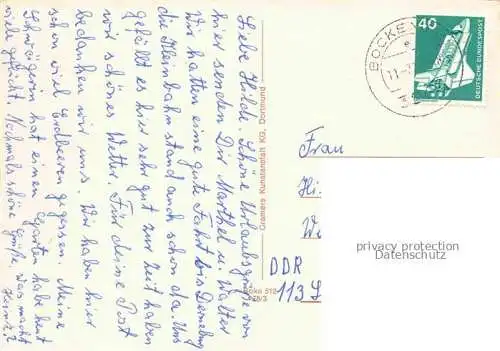 Liebe Hilde. Schöne Urlaubsgrüße von
hier senden Dir Marthel u. Walter
Wir hatten eine gute Fahrt bis Derneburg
die Kleinbahn stand auch schon da. Uns
gefällt es hier sehr gut zur Zeit haben
wir schönes Wetter. Für deine Post
bedanken wir uns. Wir haben hier
schon viel Erdbeeren gegessen. Meine
Schwägerin hat einen Garten habe heut
viele gepflückt. Nochmals schöne Grüße Was macht
Heinz?
Cramers Kunstanstalt KG, Dortmund
BOCKE
11.-
40
DEUTSCHE BUNDESPOST
Frau
Hi
We
DDR
113
privacy protection
Datenschutz